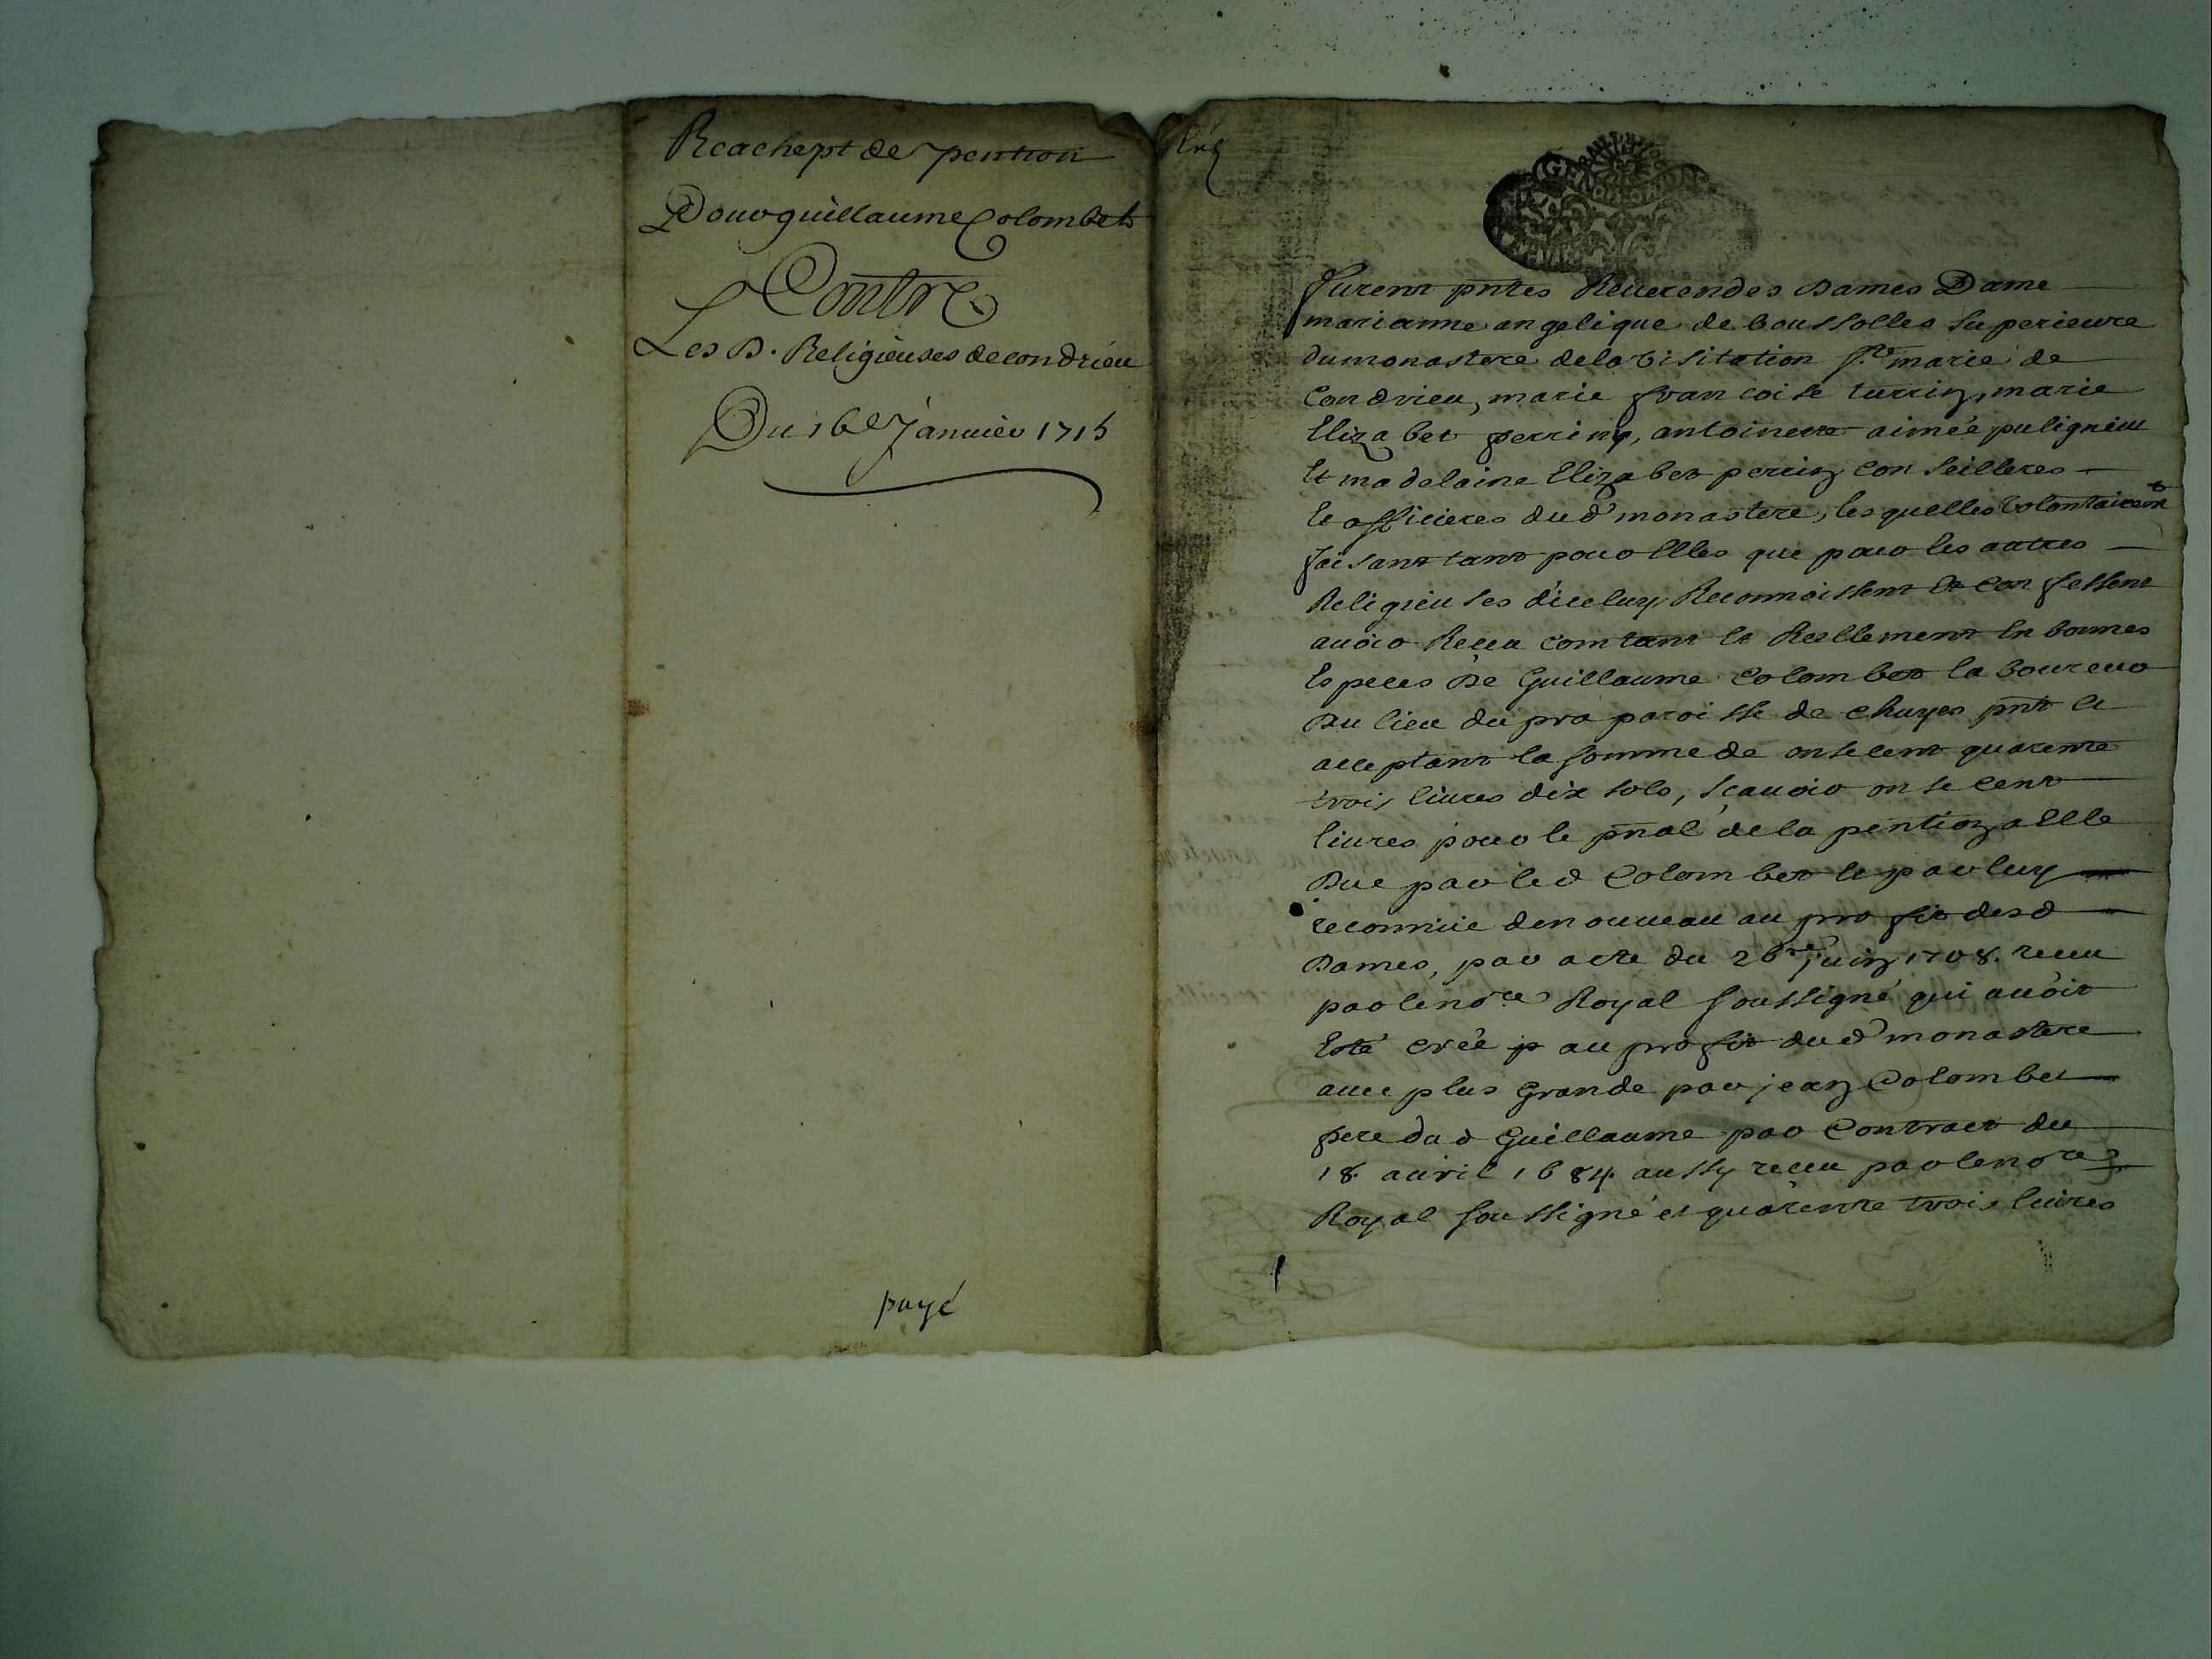 Reachept de pention
Pour guillaume Colombet
Contre
Les D. Religieuses de condrieu
Du 16e Janvier 1715
payé
furent pntes Reuerendes Dames Dame
marianne angelique de boussolles superieure
du monastere de la visitation Ste marie de
Condrieu, marie francoise turrin, marie
Elizabet perrin, antoinette aimée pulignieu
Et madelaine Elizabet perrin conseilleres
Et officieres dud monastere, lesquelles volontairemt
faisant tant pour Elles que pour les autres
Religieuses d'iceluy, Reconnoissent Et confessent
auoir Receu comtant Et Reellement En bonnes
Especes De Guillaume Colombet laboureur
Du lieu du pra paroisse de chuyes pnt Et
acceptant la somme de onse cent quarente
trois liures dix sols, scauoir onse cent
liures pour le pnal de la pention a Elle
Due par led Colombet Et par luy
reconnüe de nouueau au profit desd
Dames, par acte du 26e juin 1708. receu
par le nore Royal soussigné qui auoit
Esté creé p au profit dud monastere
auec plus Grande par jean Colombet
pere dud Guillaume par Contract du
18 auril 1684 aussy receu par le nore
Royal soussigné et quarente trois liures